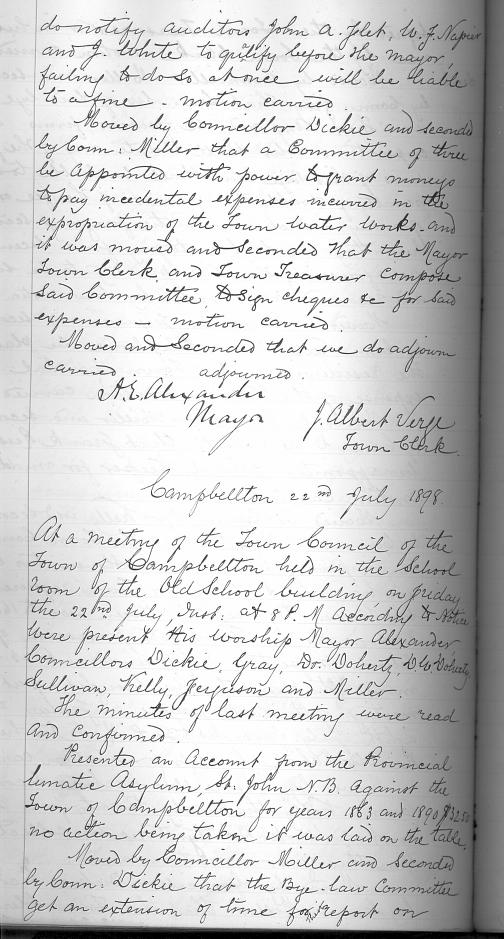 do notify auditors John A. Flet, W. J. Napier
and J. White to qualify before the mayor,
failing to do so at once will be liable
to a fine - motion carried
Moved by Councillor Dickie and seconded
by Coun: Miller that a Committee of three
be Appointed with power to grant moneys
to pay incedental expenses incurred in the
expropriation of the Town water works. and
it was moved and Seconded that the Mayor
Town Clerk and Town Treasurer compose
Said Committee, to sign cheques &c for said
expenses — motion carried
Moved and Seconded that we do adjourn
carried adjourned.
A.E. Alexander
Mayor J. Albert Verge
Town Clerk.
Campbellton 22nd July 1898.
At a meeting of the Town Council of the
Town of Campbellton held in the School
room of the Old School building on friday
the 22nd July Inst: at 8 P.M According to Notice
Were present His worship Mayor Alexander,
Councillors Dickie, Gray, Dr. Doherty, D.W. Doherty,
Sullivan, Kelly, Ferguson and Miller.
The minutes of last meeting were read
and confirmed.
Presented an Account from the Provincial
lunatic Asylum, St. John N.B. Against the
Town of Campbellton for years 1863 and 1890
no action being taken it was laid on the table.
Moved by Councillor Miller and Seconded
by Coun: Dickie that the Bye-law Committee
get an extension of time for report on